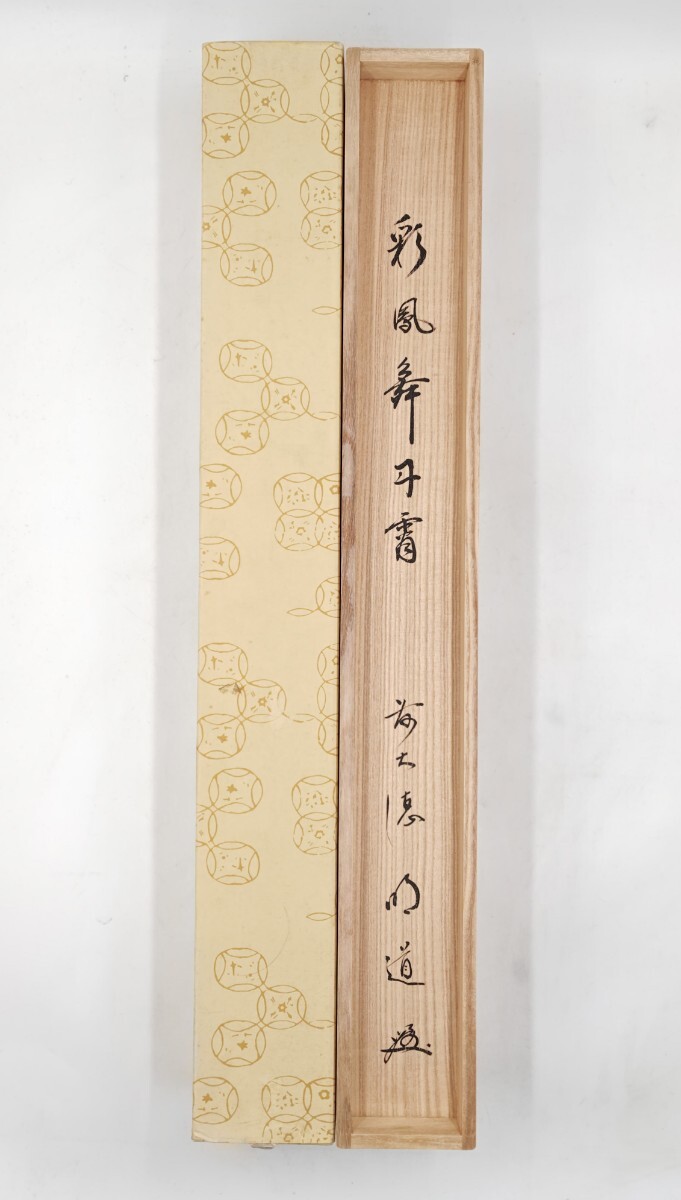 彩鳳舞丹霄
前大徳 明道